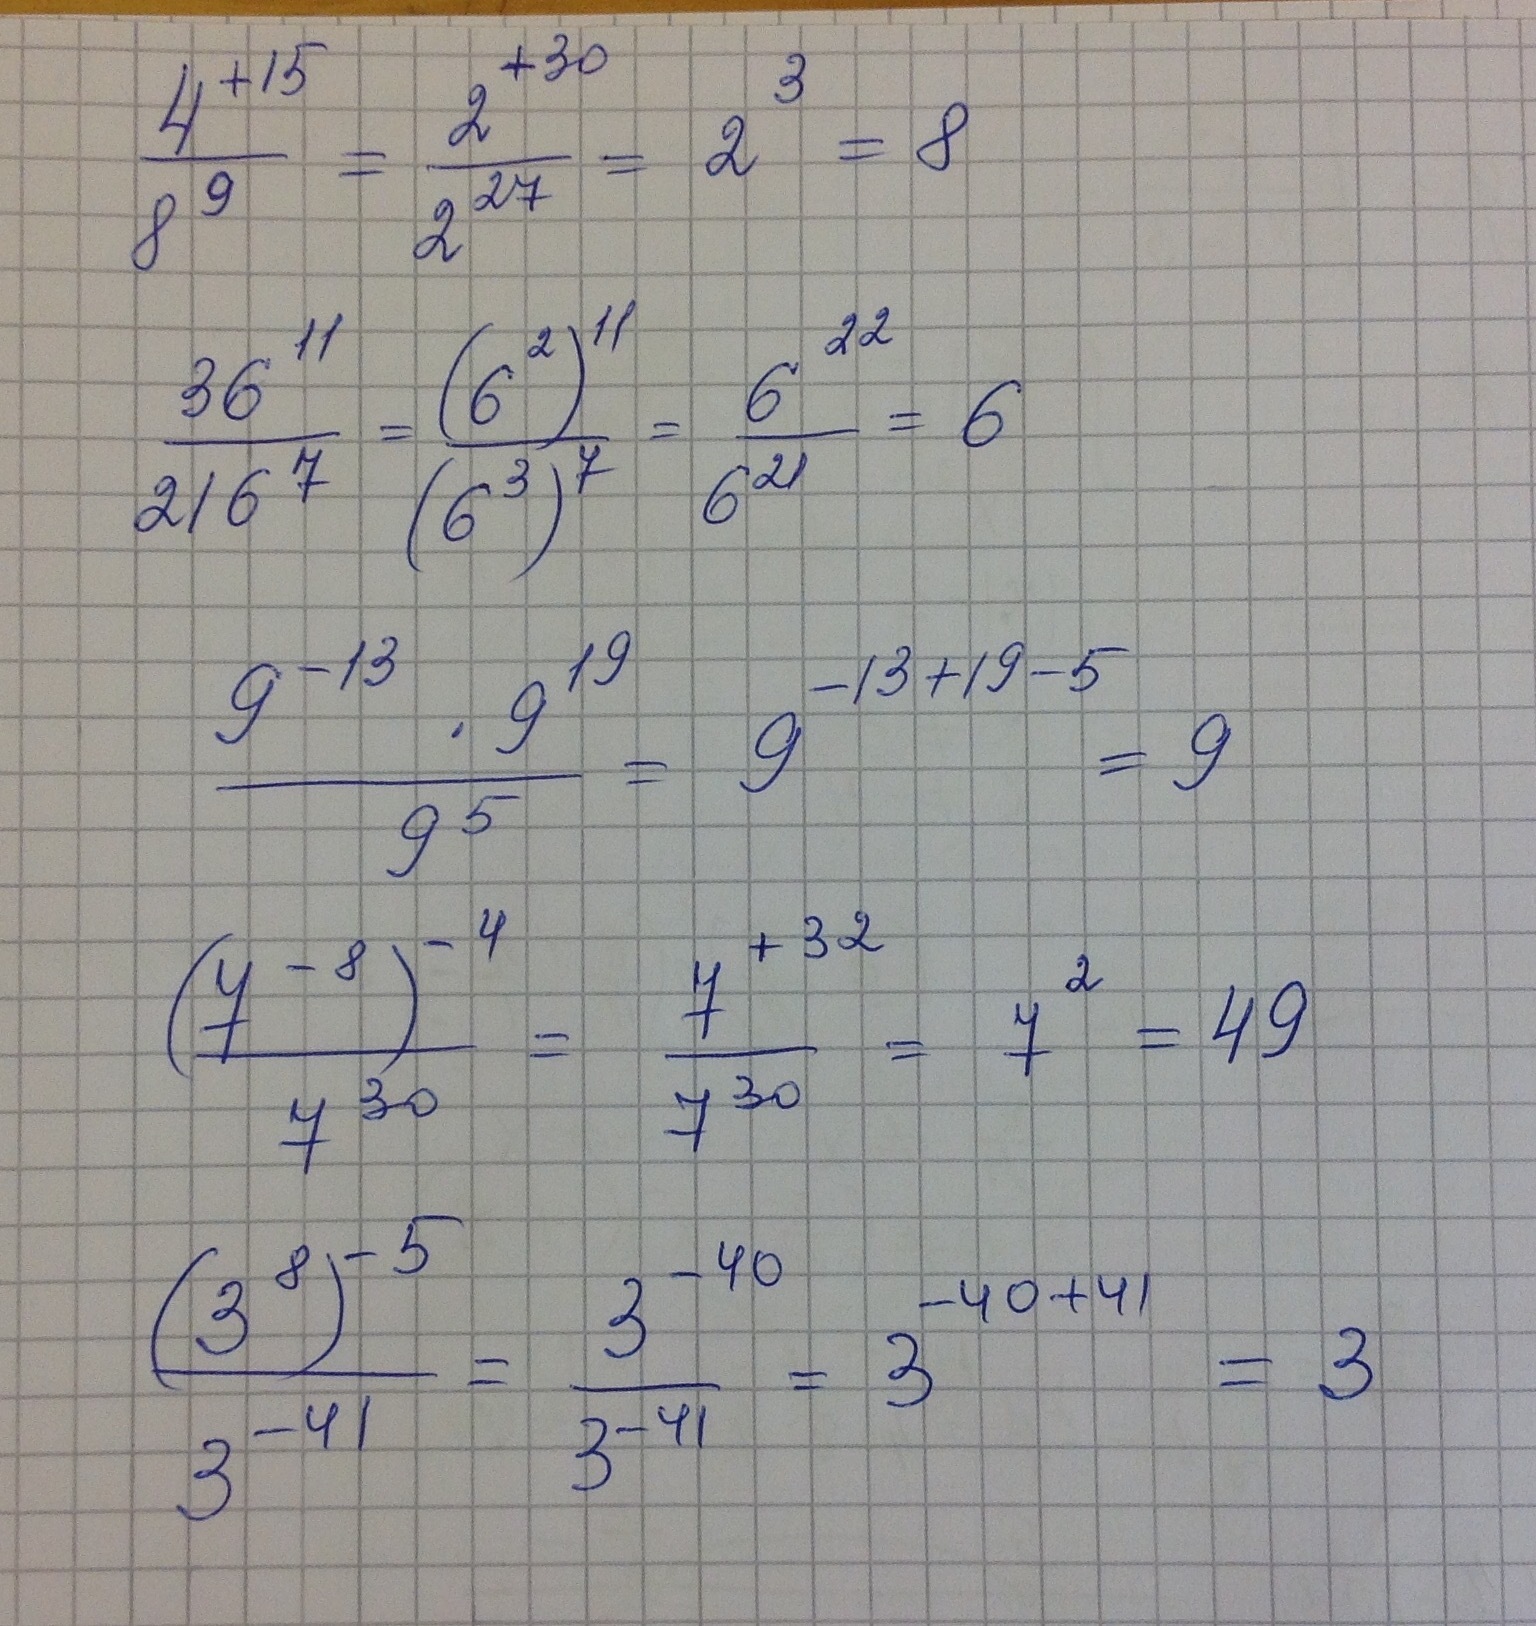 4^{+15} / 8^{9} = 2^{+30} / 2^{27} = 2^{3} = 8
36^{11} / 216^{7} = (6^{2})^{11} / (6^{3})^{7} = 6^{22} / 6^{21} = 6
9^{-13} · 9^{19} / 9^{5} = 9^{-13+19-5} = 9
(7^{-8})^{-4} / 7^{30} = 7^{+32} / 7^{30} = 7^{2} = 49
(3^{8})^{-5} / 3^{-41} = 3^{-40} / 3^{-41} = 3^{-40+41} = 3